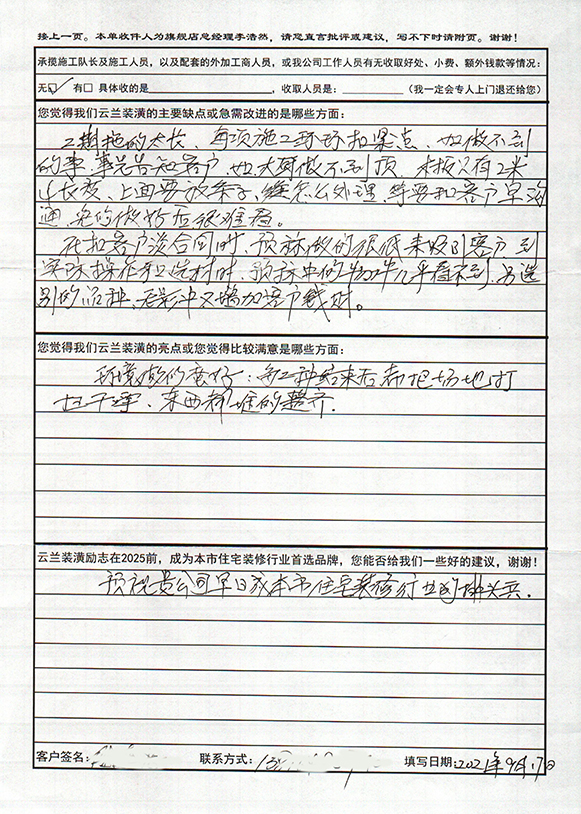 接上一页。本单收件人为旗舰店总经理李浩然,请您直言批评或建议,写不下时请附页。谢谢!
承揽施工队长及施工人员,以及配套的外加工商人员,或我公司工作人员有无收取好处、小费、额外钱款等情况:
无☑ 有□ 具体收的是 ,收取人员是: (我一定会专人上门退还给您)
您觉得我们云兰装潢的主要缺点或急需改进的是哪些方面:
工期拖的太长、每项施工环环扣累点、如做不到
的事,事先告知客户,如大厨做不到顶、木板只有2米
4长度、上面要放条子,缝怎么处理,等要和客户早沟
通,免的做好后很难看。
在和客户谈合同时,预标做的很低来吸引客户,到
实际操作和选材时,预标中的物件几乎看不到,另选
别的品种,无形中又增加客户钱财。
您觉得我们云兰装潢的亮点或您觉得比较满意是哪些方面:
环境做的蛮好:每工种结束后都把场地打
扫干净、东西都堆的整齐.
云兰装潢励志在2025前,成为本市住宅装修行业首选品牌,您能否给我们一些好的建议,谢谢!
预祝贵公司早日成本市住宅装修行业的排头兵.
客户签名: 联系方式: 填写日期:2021年9月17日